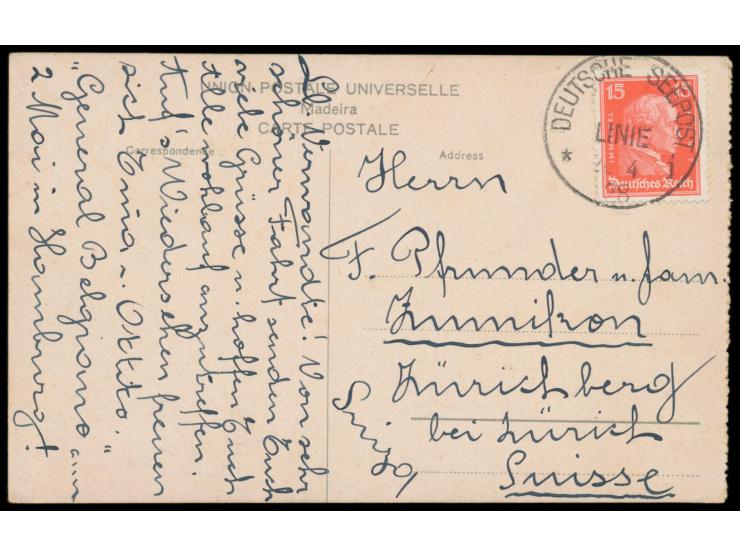 UNION POSTALE UNIVERSELLE
Madeira
CARTE POSTALE
Correspondence
Address
DEUTSCHE SEEPOST
LINIE
* 4
28
15
IMMANUEL
Deutsches Reich
Herrn
F. Pfrunder u. fam.
Zumikon
Zürichberg
bei Zürich
Suisse
Suiza
Lb. Verwandte! Von sehr
schöner Fahrt senden Euch
viele Grüsse u. hoffen Euch
Alle wohlauf anzutreffen.
Auf's Wiedersehen freuen
sich Tina u. Ottito.
"General Belgrano" am
2 Mai in Hamburg!